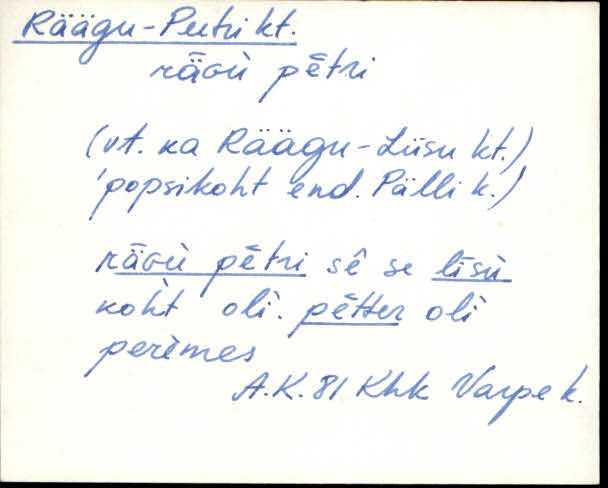 Räägu-Peetri kt.
rǟɢù pētri
(vt. ka Räägu-Liisu kt.)
'popsikoht end. Pälli k.)
rǟɢù pētri sê se līsù
koht oli. pētter oli
perèmes
A.K. 81 Khk Varpe k.